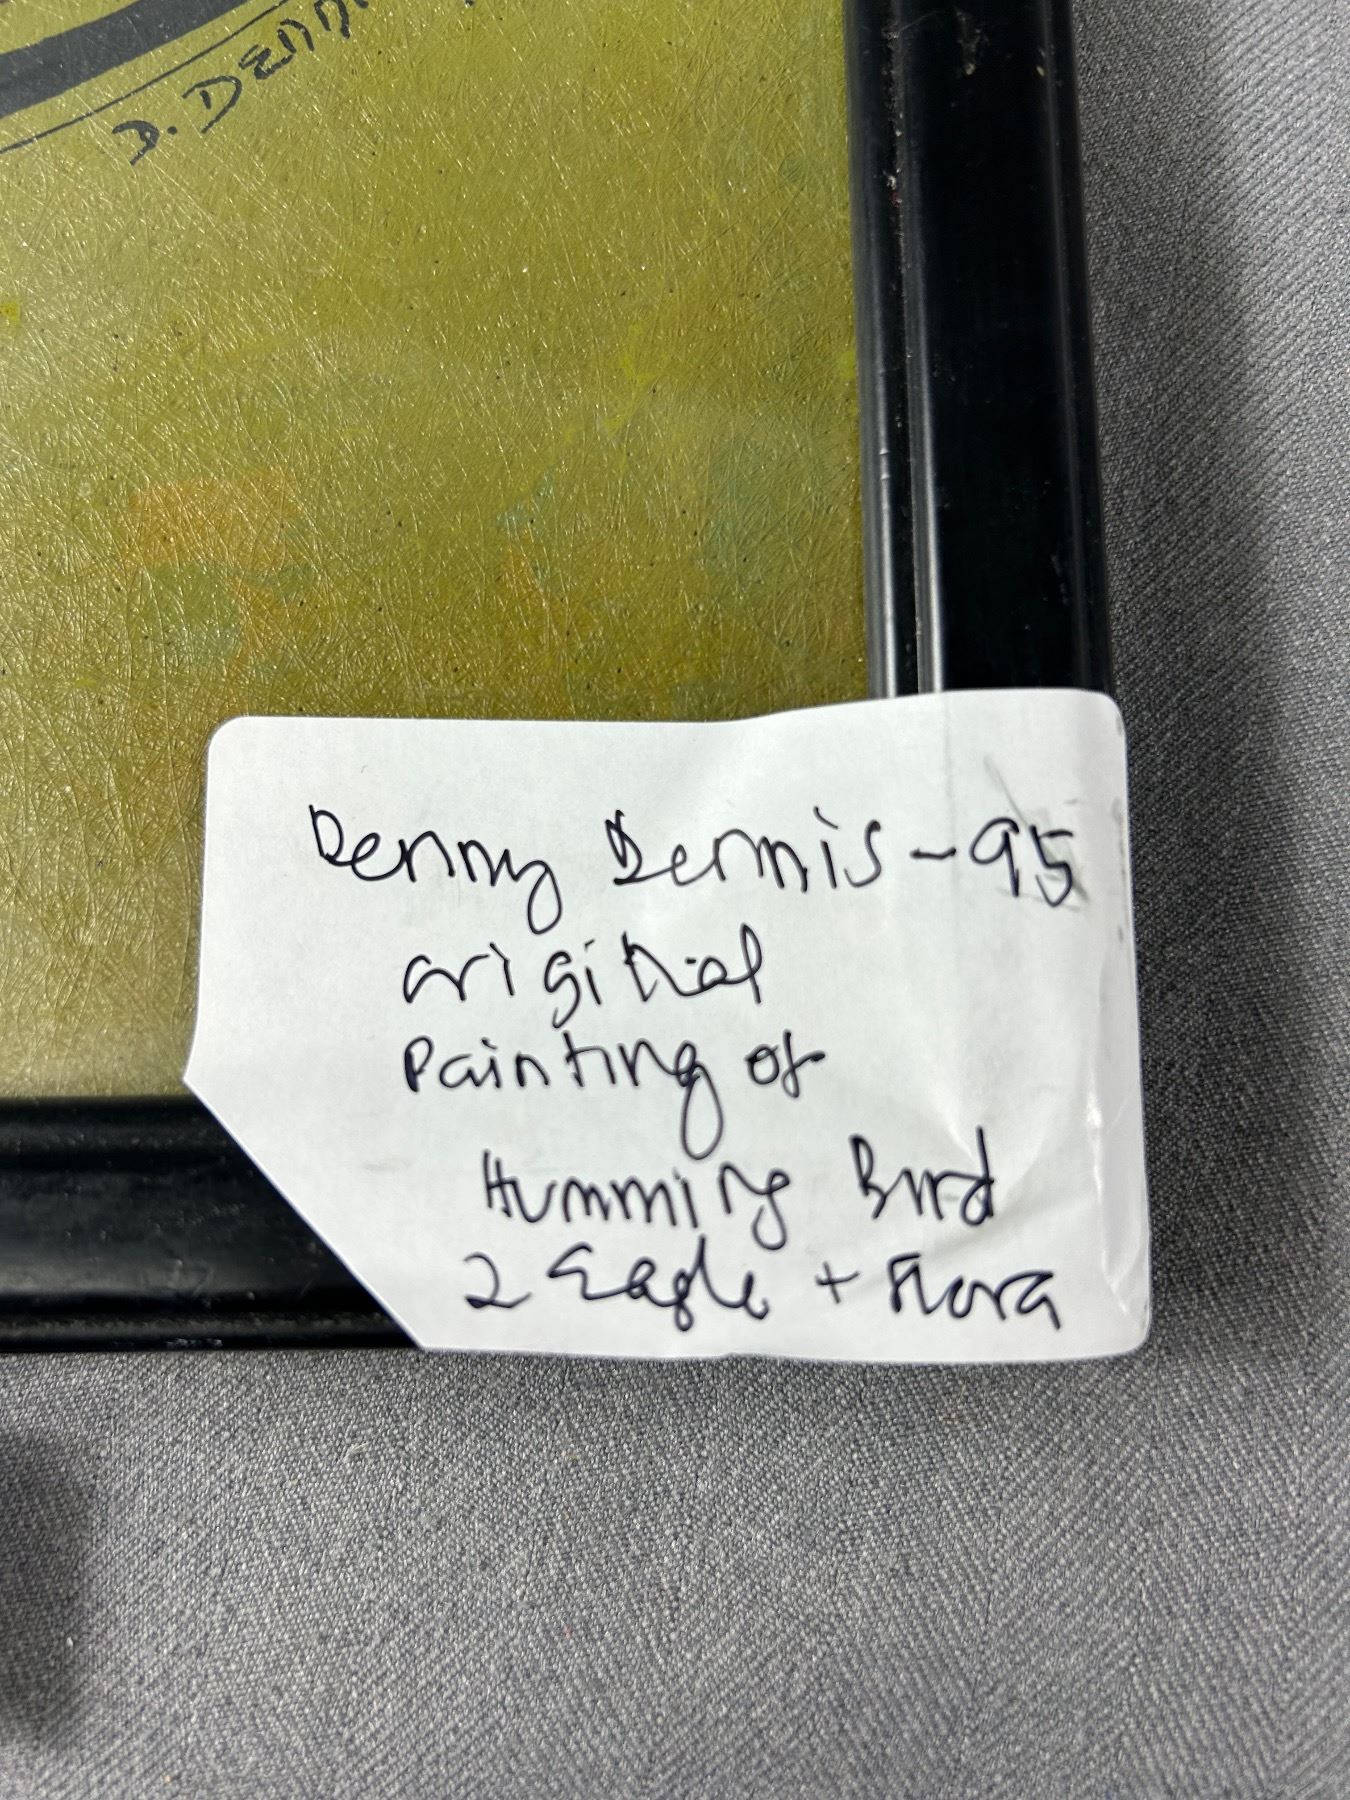 D. DENN
Denny Dennis - 95
original
Painting of
Humming Bird
2 Eagle + Flora